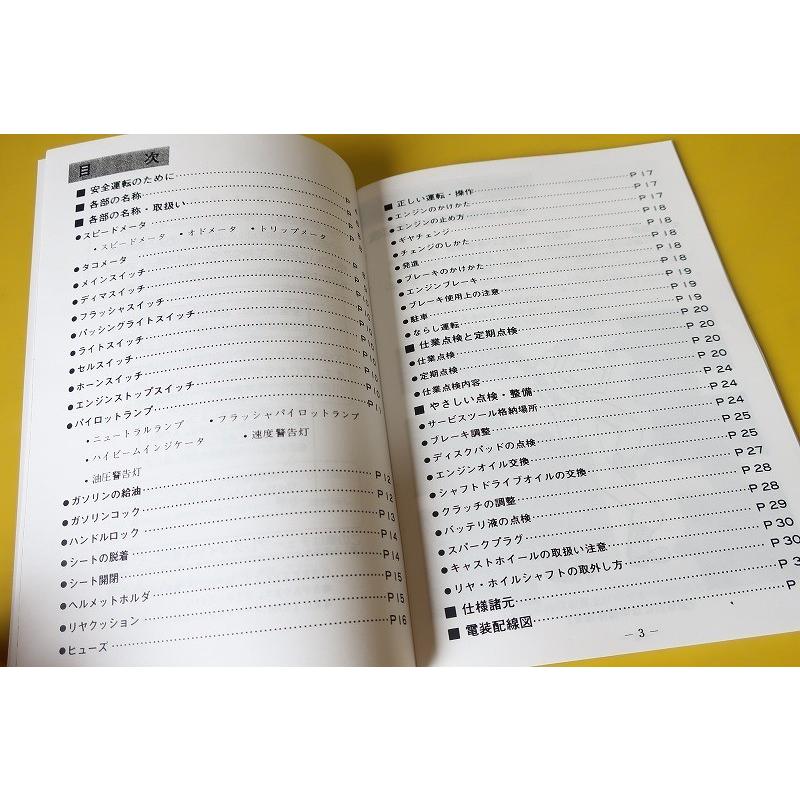 目 次
■ 安全運転のために
■ 各部の名称
■ 各部の名称・取扱い
●スピードメータ
・スピードメータ ・オドメータ ・トリップメータ
●タコメータ
●メインスイッチ
●ディマスイッチ
●フラッシャスイッチ
●パッシングライトスイッチ
●ライトスイッチ
●セルスイッチ
●ホーンスイッチ
●エンジンストップスイッチ
●パイロットランプ
・ニュートラルランプ ・フラッシャパイロットランプ
・ハイビームインジケータ ・速度警告灯
・油圧警告灯
●ガソリンの給油 P12
●ガソリンコック P12
●ハンドルロック P13
●シートの脱着 P14
●シート開閉 P14
●ヘルメットホルダ P15
●リヤクッション P15
●ヒューズ P16
■ 正しい運転・操作 P17
●エンジンのかけかた P17
●エンジンの止め方 P18
●ギヤチェンジ P18
●チェンジのしかた P18
●発進 P18
●ブレーキのかけかた P18
●エンジンブレーキ P19
●ブレーキ使用上の注意 P19
●駐車 P19
●ならし運転 P20
■ 仕業点検と定期点検 P20
●仕業点検 P20
●定期点検 P20
●仕業点検内容 P24
■ やさしい点検・整備 P24
●サービスツール格納場所 P24
●ブレーキ調整 P25
●ディスクパッドの点検 P25
●エンジンオイル交換 P27
●シャフトドライブオイルの交換 P28
●クラッチの調整 P28
●バッテリ液の点検 P29
●スパークプラグ P30
●キャストホイールの取扱い注意 P30
●リヤ・ホイルシャフトの取外し方
■ 仕様諸元
■ 電装配線図
－3－